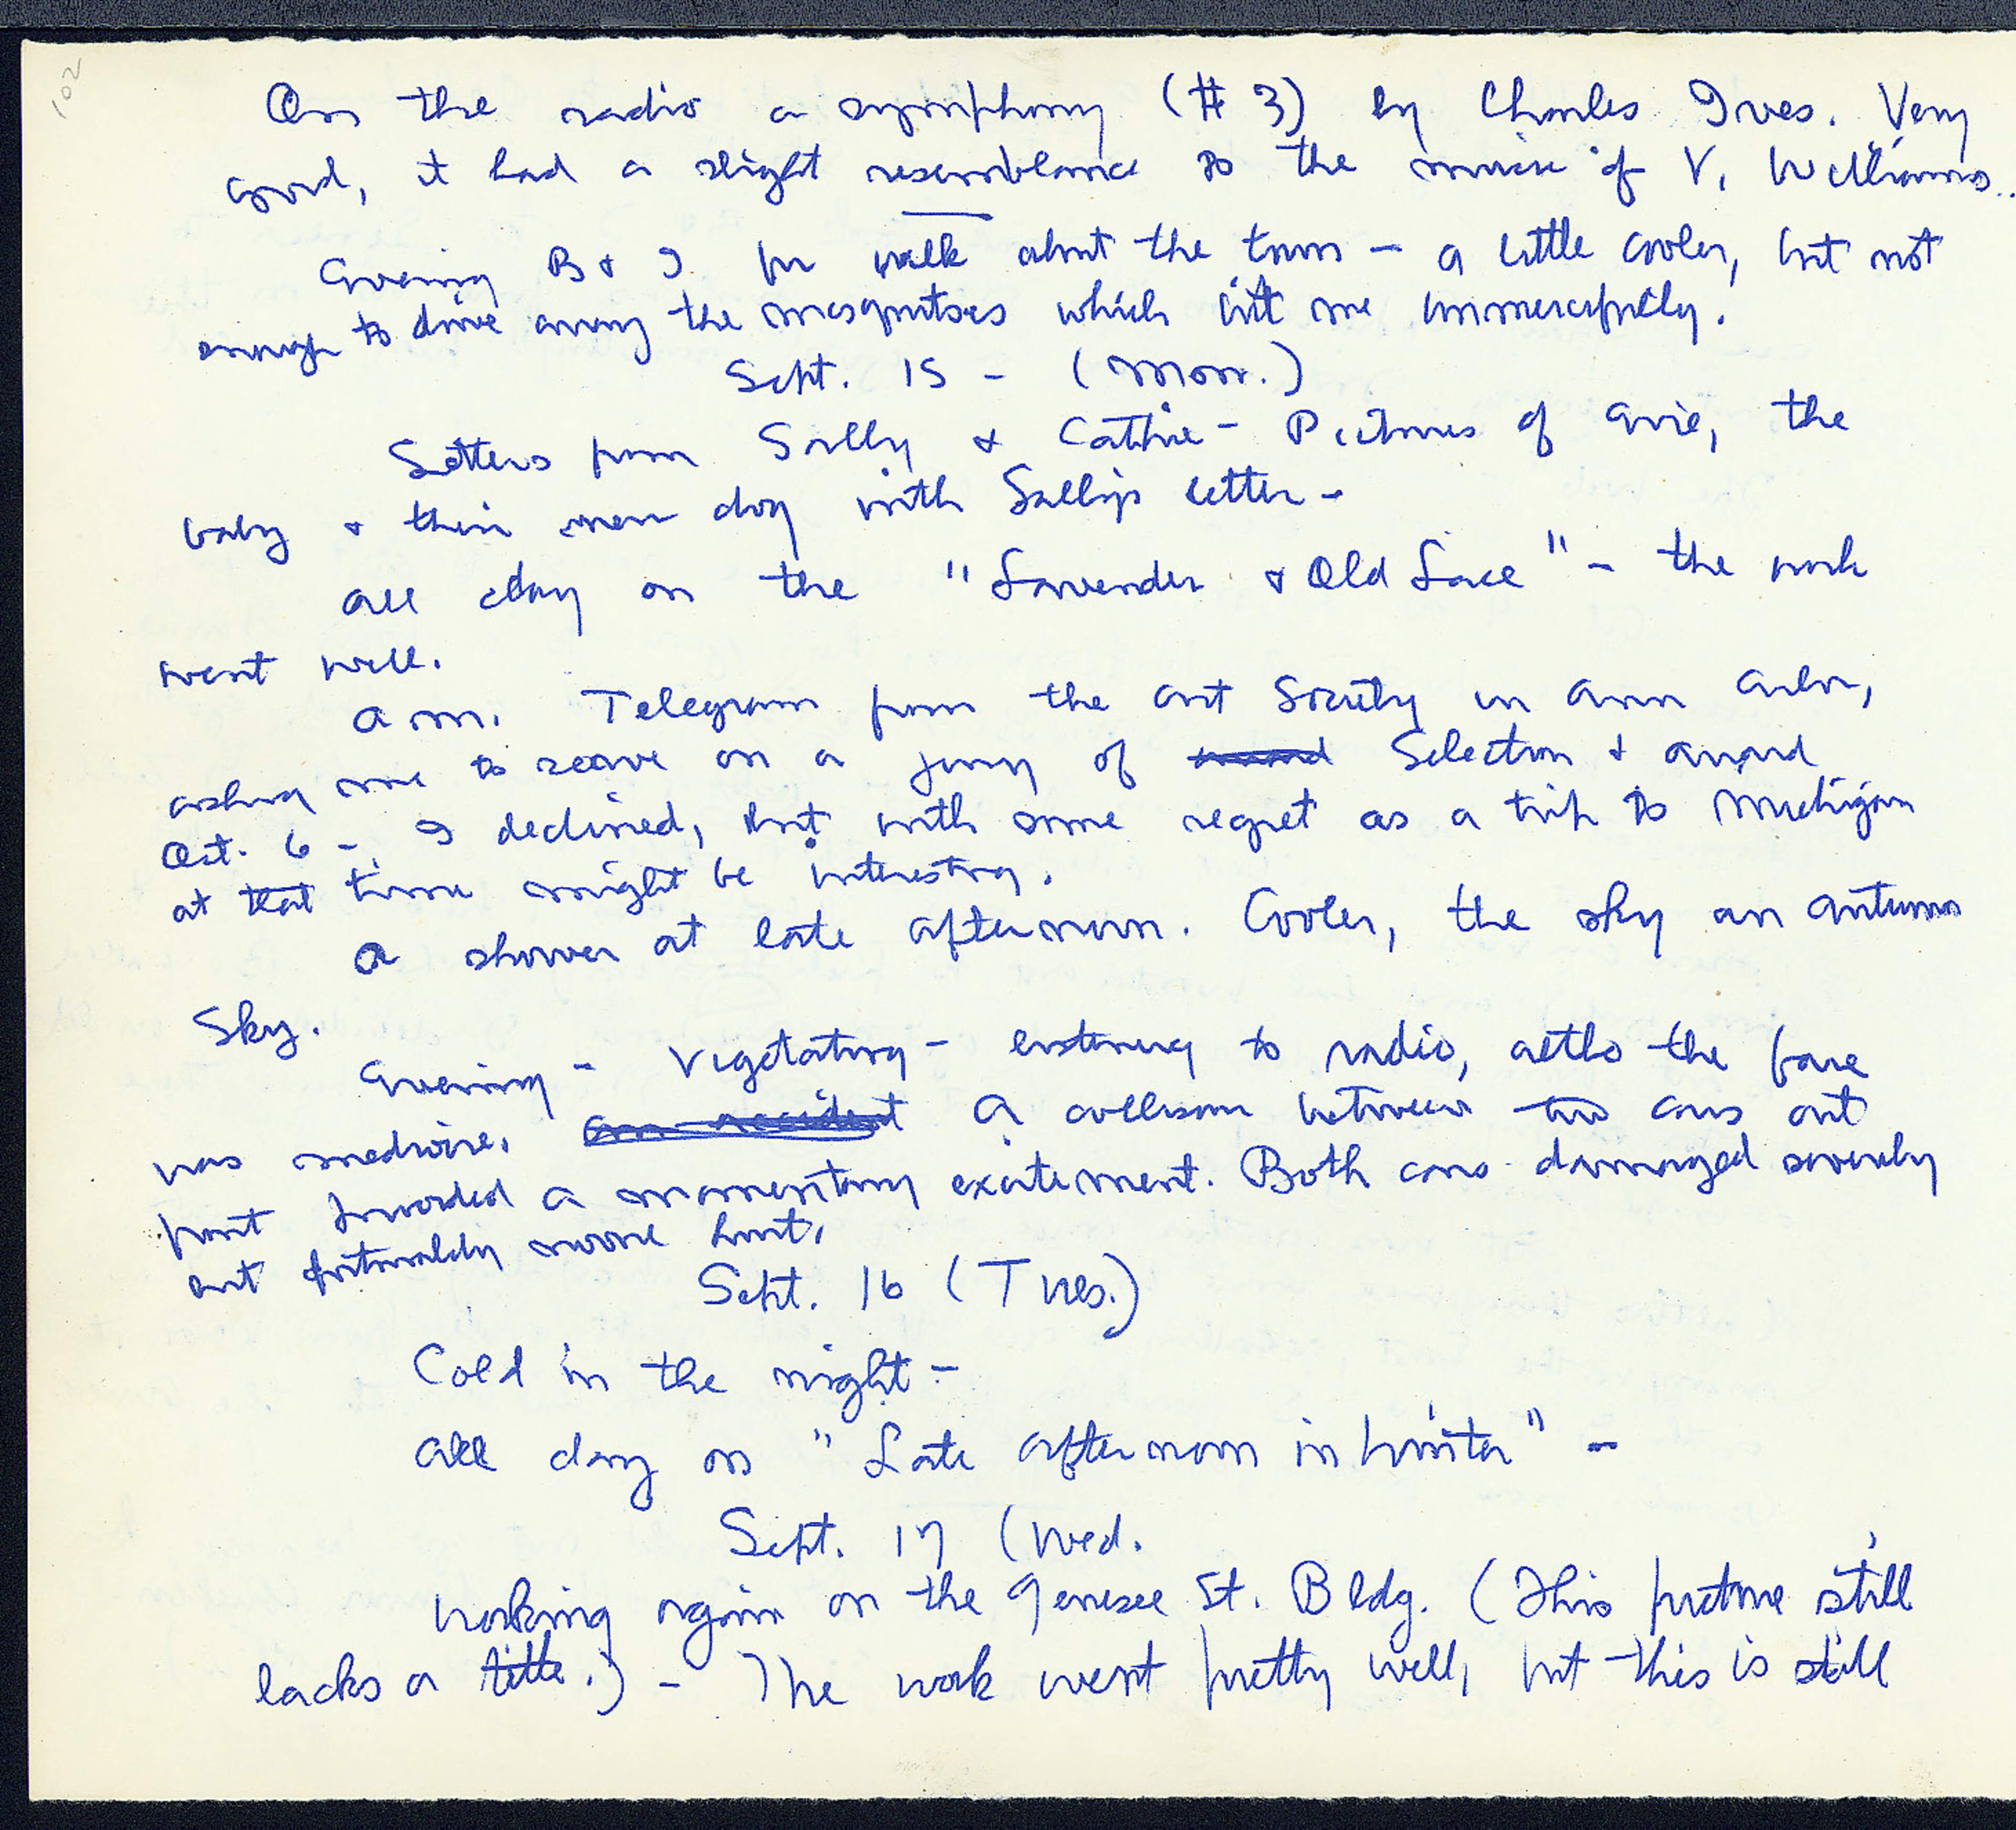 102
On the radio a symphony (#3) by Charles Ives. Very
good, it had a slight resemblance to the music of V. Williams..
Evening B & I for walk about the town – a little cooler, but not
enough to drive away the mosquitoes which bit me unmercifully.
Sept. 15 – (Mon.)
Letters from Sally & Cathie – Pictures of Arie, the
baby & their new dog with Sally's letter –
All day on the "Lavender & Old Lace" – the work
went well.
A.m. Telegram from the Art Society in Ann Arbor,
asking me to serve on a jury of Selection & award
Oct. 6 – I declined, but with some regret as a trip to Michigan
at that time might be interesting.
A shower at late afternoon. Cooler, the sky an autumn
Sky.
Evening – Vegetating – listening to radio, altho the fare
was mediocre. an accident A collision between two cars out
front provided a momentary excitement. Both cars damaged severely
but fortunately no one hurt.
Sept. 16 (Tues.)
Cold in the night –
All day on "Late Afternoon in Winter" –
Sept. 17 (Wed.
Working again on the Genesee St. Bldg. (This picture still
lacks a title.) – The work went pretty well, but this is still